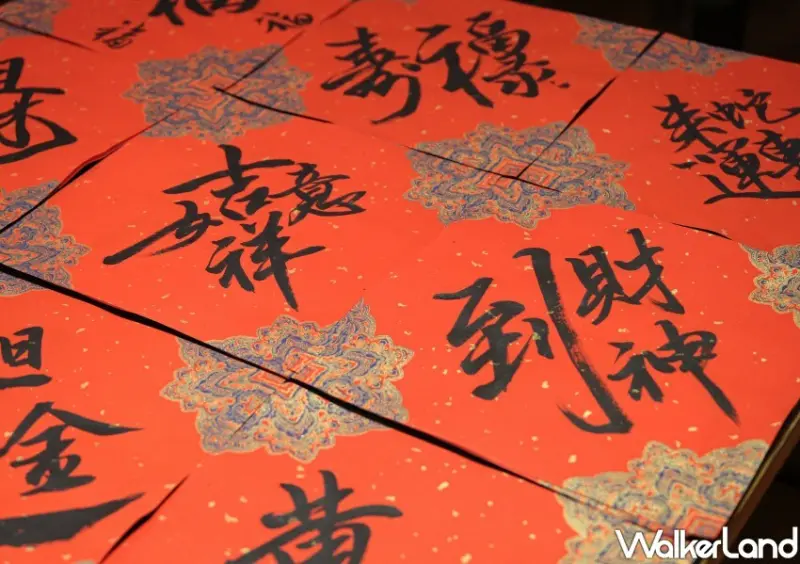 福
福 福
壽 祿
來 蛇
運 轉
吉 意
如 祥
財
到 神
旦
金
黃
WalkerLand